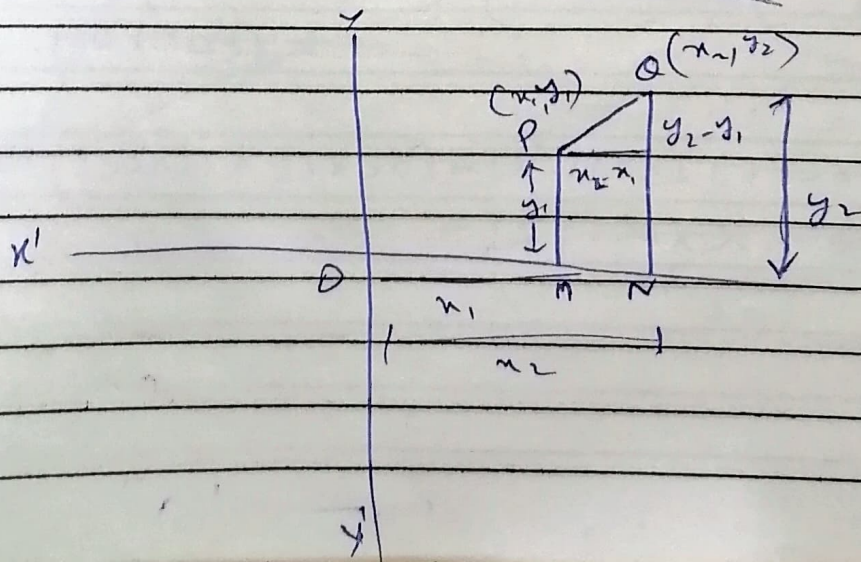 Y
Q (x₂, y₂)
(x₁, y₁)
P
y₂-y₁
x₂-x₁
y₁
y₂
x'
O
M
N
x₁
x₂
y'